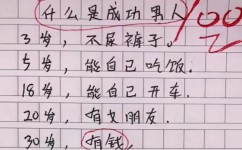 什么是成功男人
100
3岁，不尿裤子。
5岁，能自己吃饭.
18岁，能自己开车.
20岁，有女朋友.
30岁，有钱.